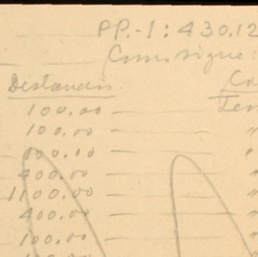 PP.-1:430.12
Como sigue:
Distancia
100.00
100.00
100.10
400.00
1100.00
400.00
100.00